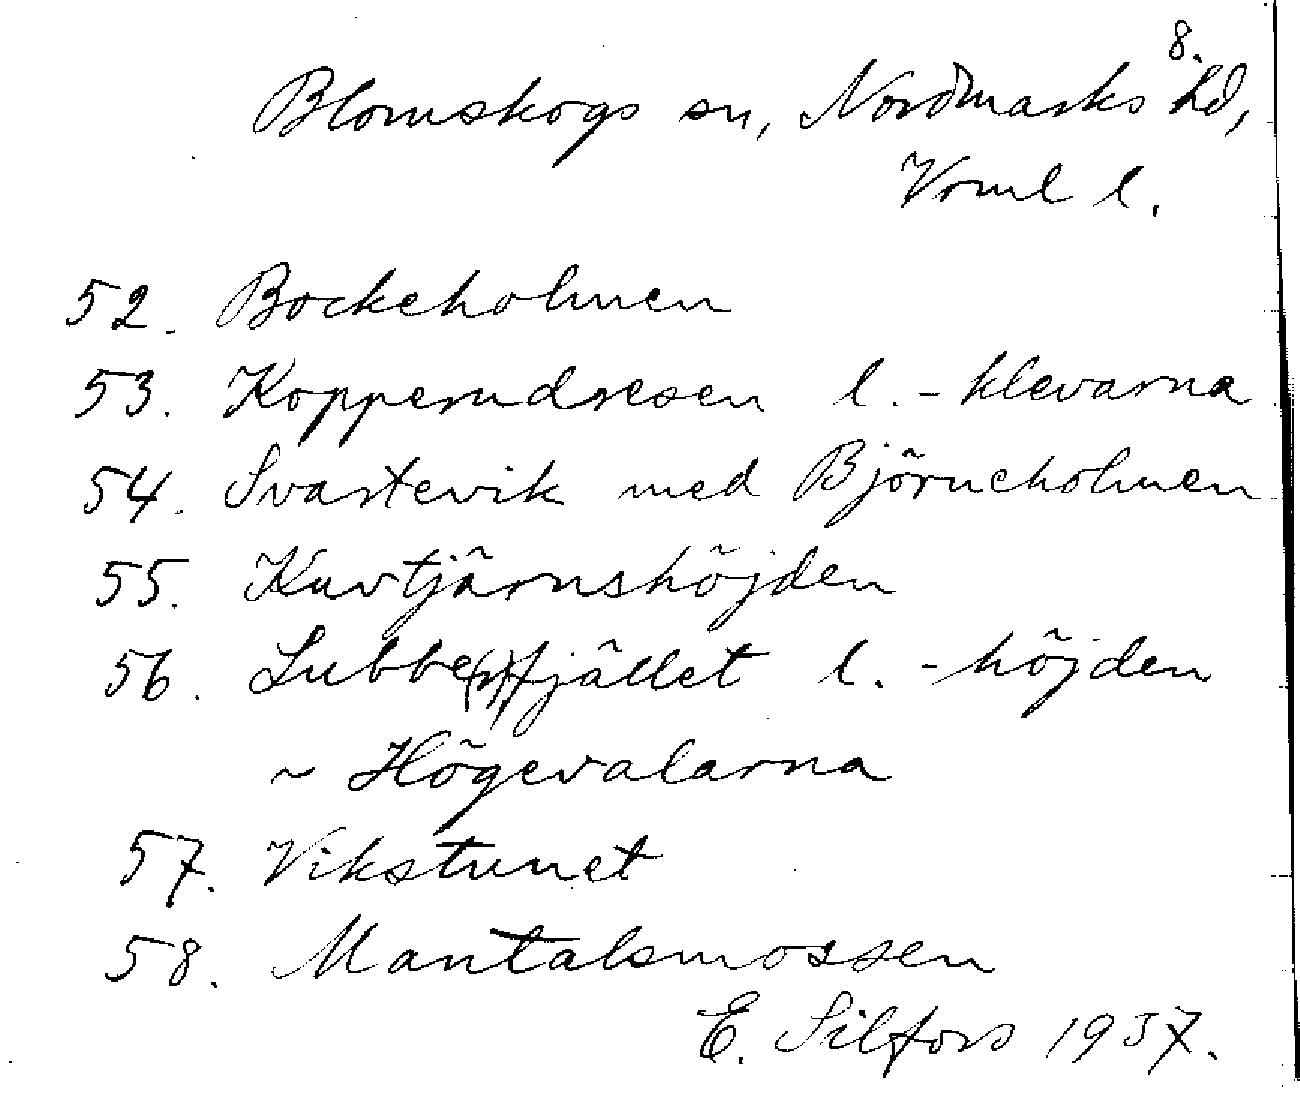 8.
Blomskogs sn, Nordmarks hd,
Vrml l.
52. Bockeholmen
53. Kopperudsesen l. -klevarna
54. Svartevik med Björneholmen
55. Kuvtjärnshöjden
56. Lubbe(r)fjället l. -höjden
~ Högevalarna
57. Vikstunet
58. Mantalsmossen
E. Silfors 1937.